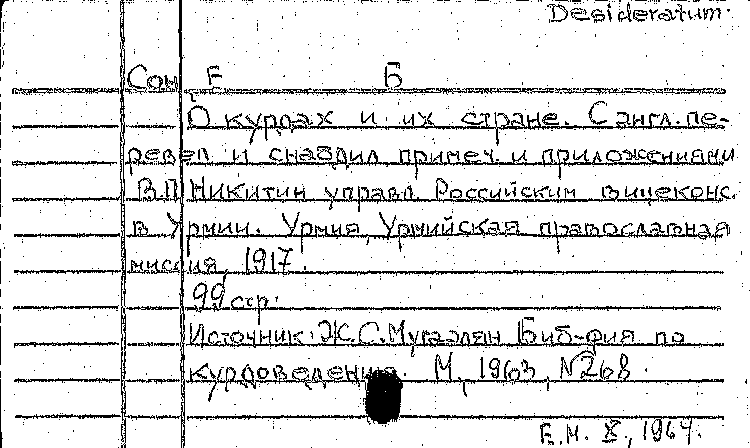 Desideratum.
Сон Е Б
О курдах и их стране. С англ. пе-
ревел и снабдил примеч. и приложениями
В.П. Никитин управл. Российским вицеконс.
в Урмии. Урмия, Урмийская православная
миссия, 1917.
99 стр.
Источник: Ж.С. Мусаэлян Биб-фия по
курдоведению. М., 1963, N268.
Е.М. X, 1964.